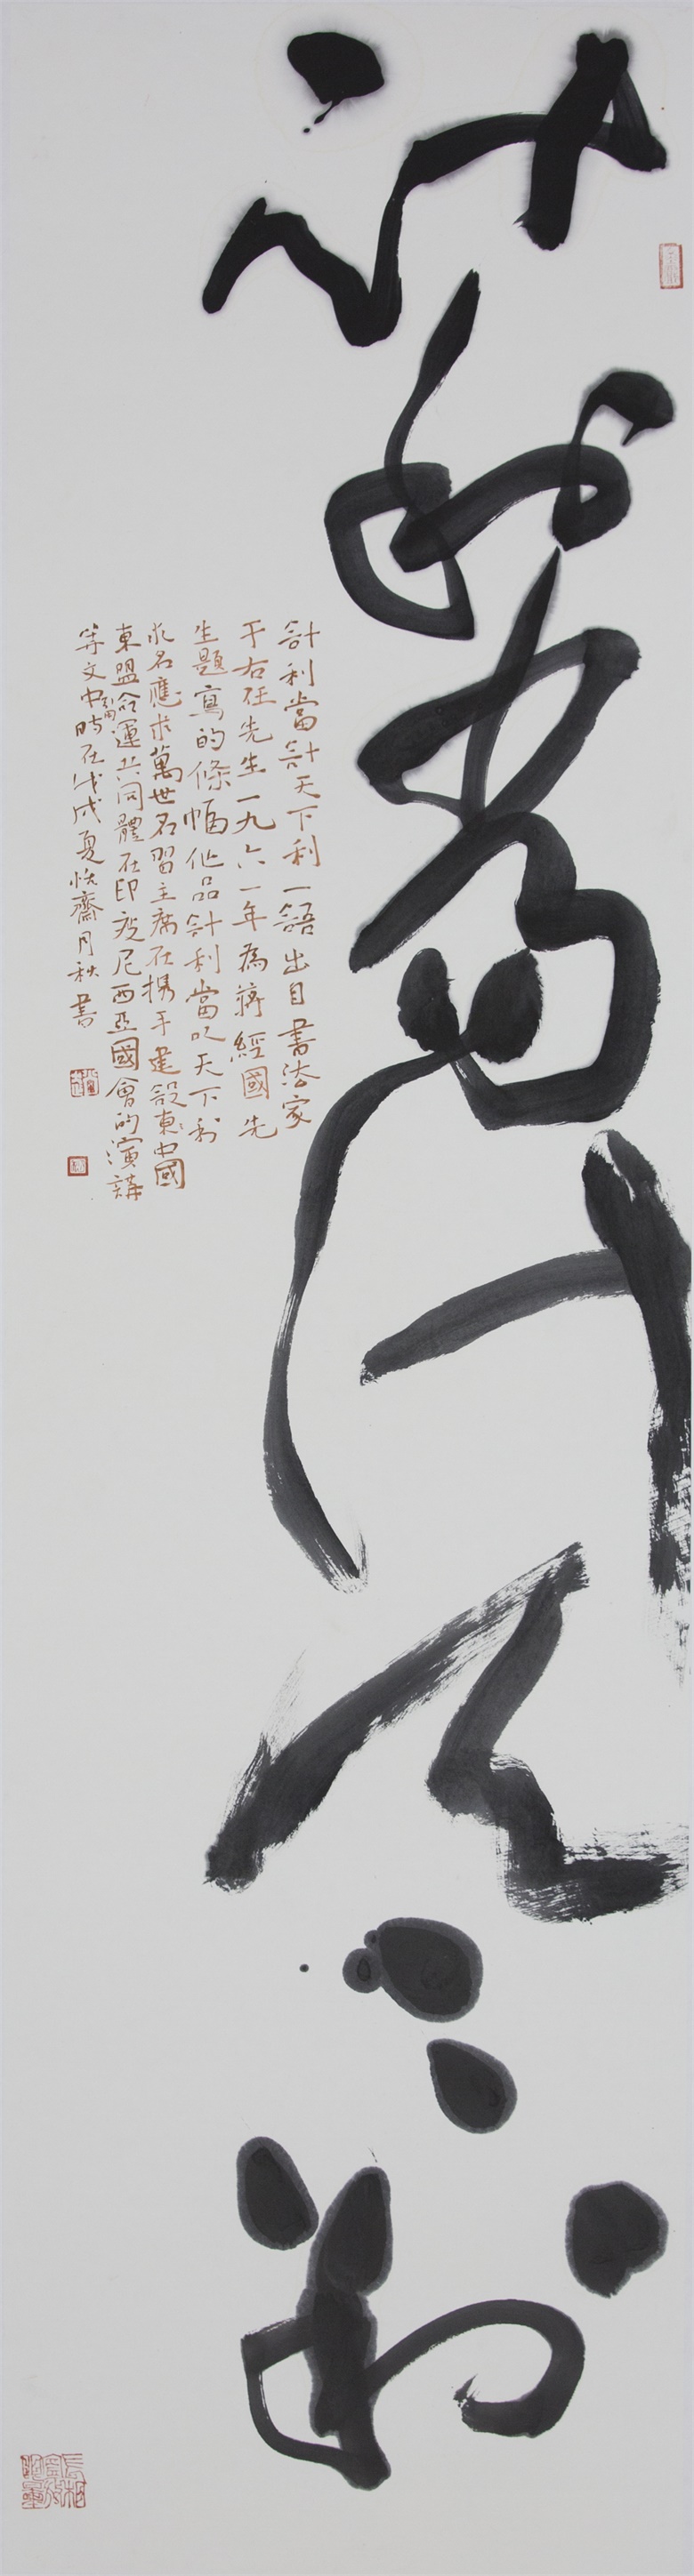 計利當計天下利
計利當計天下利一語出自書法家
于右任先生一九六一年為蔣經國先
生題寫的條幅作品計利當以天下利
求名應求萬世名習主席在攜手建設中國
東盟命運共同體在印度尼西亞國會的演講
等文中引用時在戊戌夏悅齋月秋書